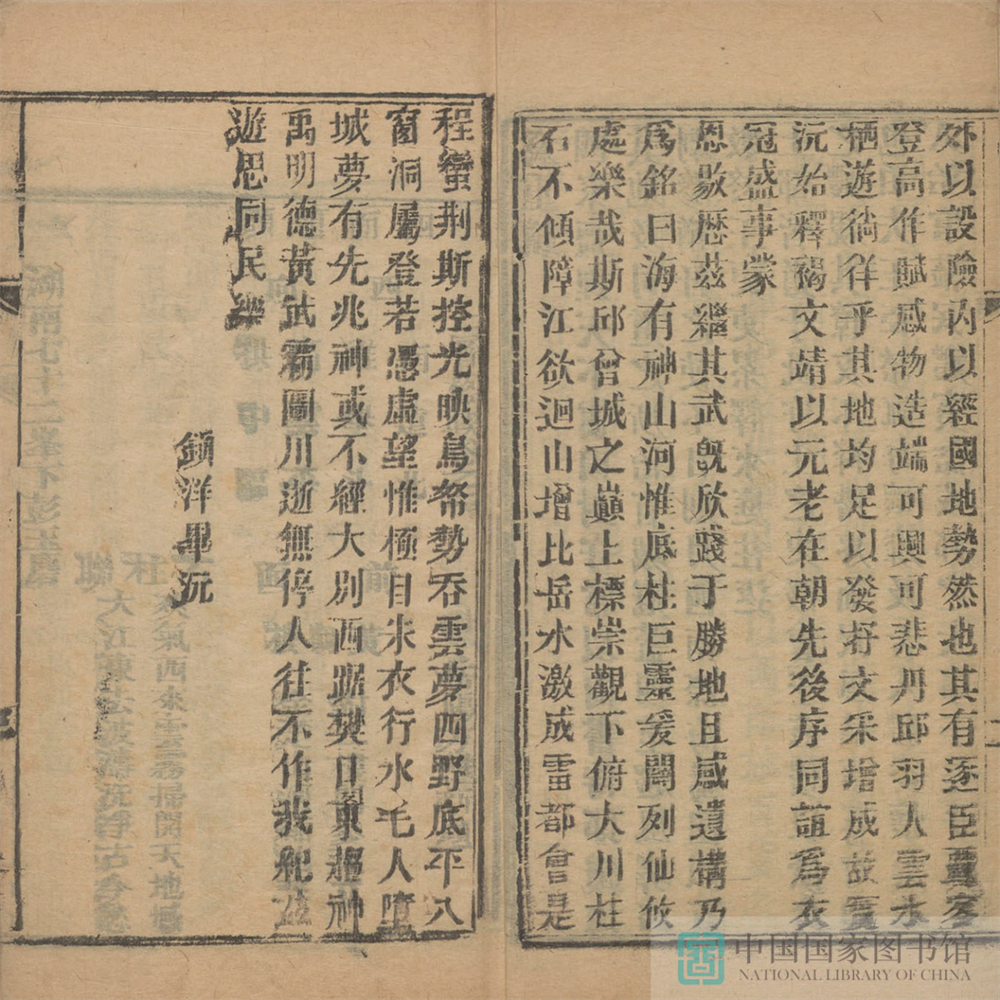 外以設險內以經國地勢然也其有逐臣羈客
登高作賦感物造端可興可悲丹邱羽人雲水
栖遊徜徉乎其地均足以發抒文采增成故實
沅始釋褐文靖以元老在朝先後序同誼爲衣
冠盛事蒙
恩敭歷茲繼其武既欣踐于勝地且感遺構乃
爲銘曰海有神山河惟底柱巨靈爰闢列仙攸
處樂哉斯邱曾城之巔上標崇觀下俯大川柱
石不傾障江欲迴山增比岳水激成雷都會是
程蠻荆斯控光映鳥帑勢吞雲夢四野底平八
窗洞屬登若憑虛望惟極目朱衣行水毛人墮
城夢有先兆神或不經大別西踞樊口東趨神
禹明德黃武霸圖川逝無停人往不作我紀茲
遊思同民樂
鎮洋畢沅
中国国家图书馆
NATIONAL LIBRARY OF CHINA